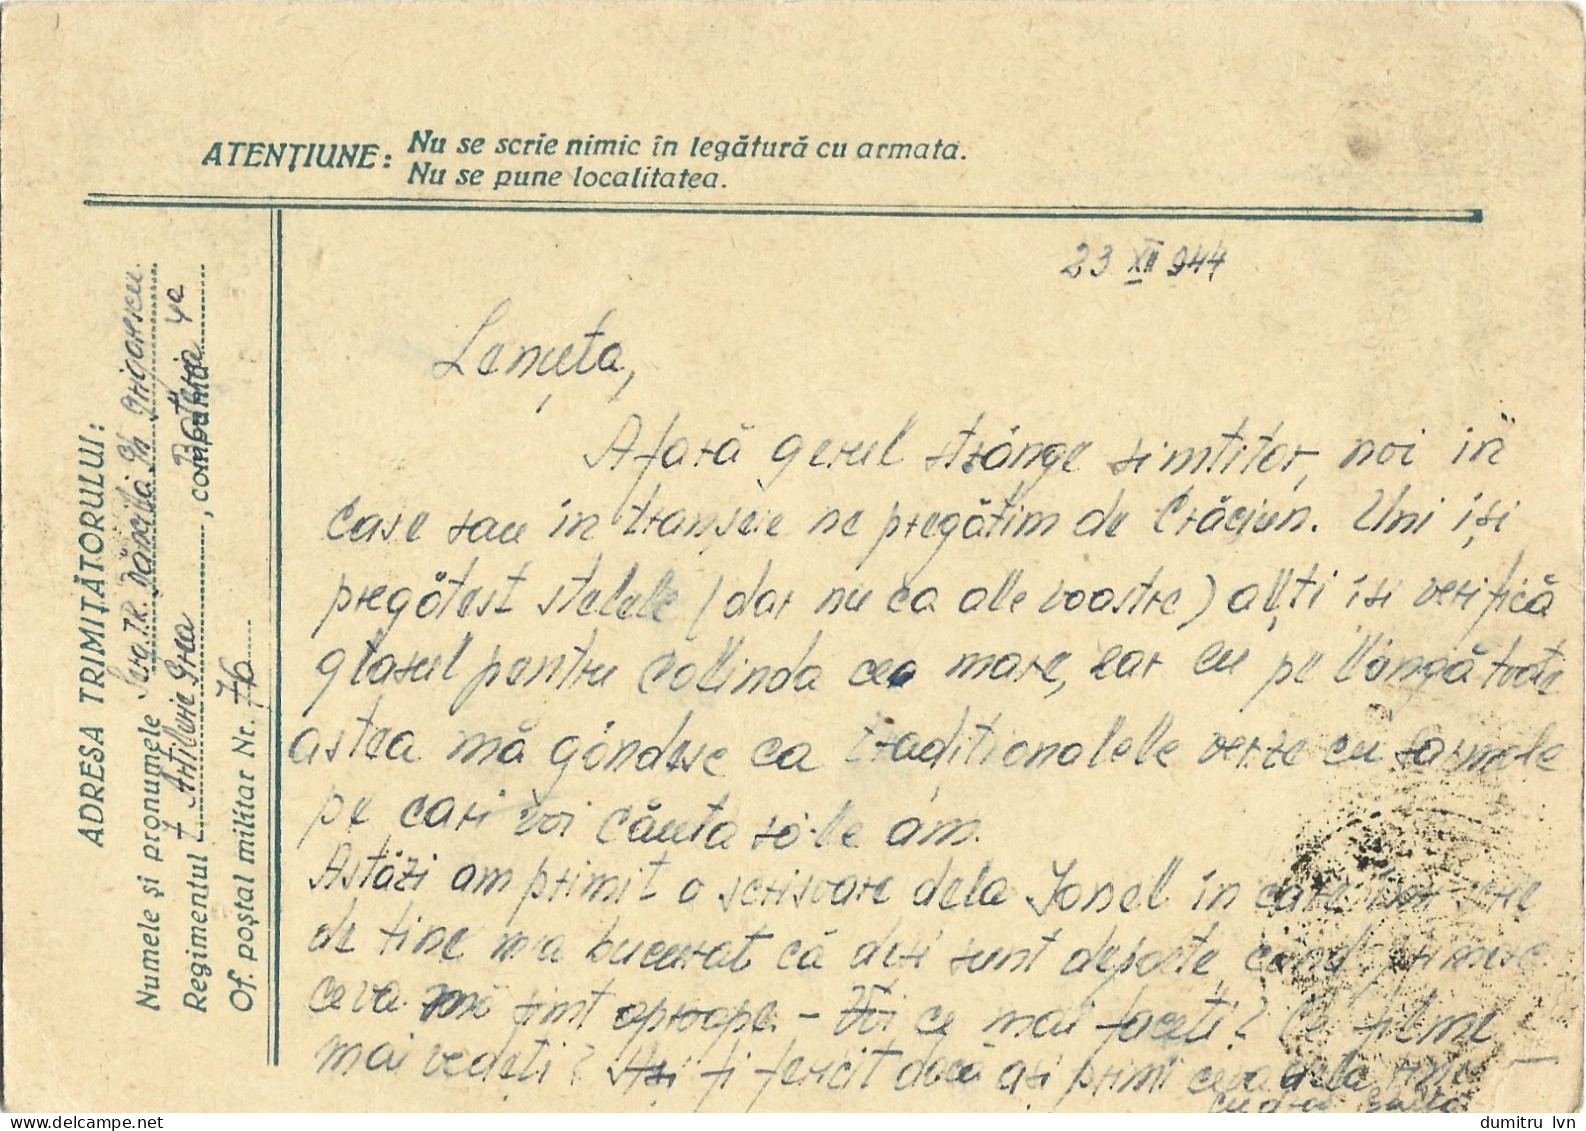 ATENȚIUNE: Nu se scrie nimic în legătură cu armata.
Nu se pune localitatea.
ADRESA TRIMIȚĂTORULUI:
Numele și pronumele Serg. T.R. Dăncilă Gh Grigorescu
Regimentul 7 Artilerie Grea, compania Bateria 4a
Of. poștal militar Nr. 76
23 XII 944
Lenuța,
Afară gerul strânge simtitor, noi în
case sau în tranșeie ne pregătim de Crăciun. Uni iși
pregătesc stelele (dar nu ca ale voastre) alți isi verifică
glasul pentru Colinda cea mare, iar eu pe lângă toate
astea mă gândesc ca tradiționalele verze cu sarmale
pe cari voi căuta să-le am.
Astăzi am primit o scrisoare dela Ionel în care scrie
de tine m-a bucurat că deși sunt departe când primesc
ceva mă simt aproape. - Voi ce mai faceti? Ce filme
mai vedeți? Ași fi fericit dacă ași primi ceva dela tine -
cu drag
dumitru lvn